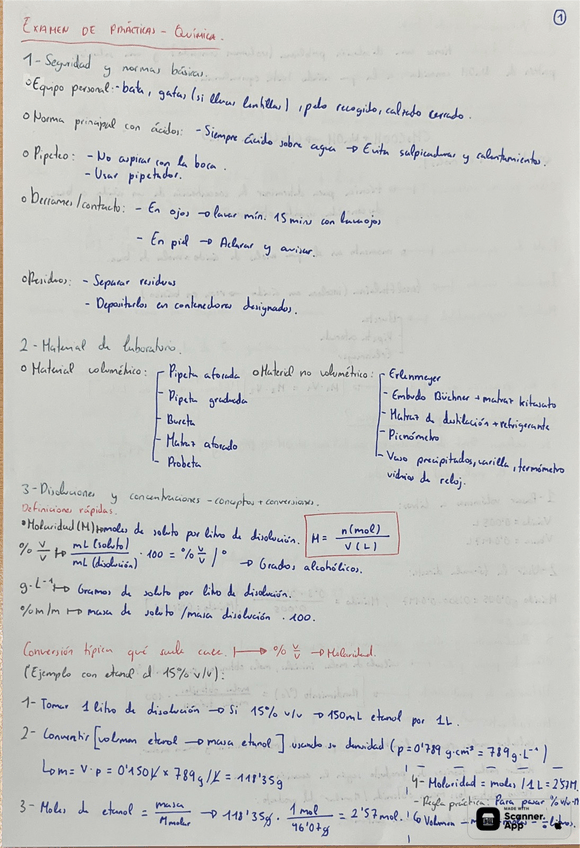 ①
EXAMEN DE PRÁCTICAS - QUÍMICA.
1- Seguridad y normas básicas.
○ Equipo personal: - bata, gafas (si llevas lentillas), pelo recogido, calzado cerrado.
○ Norma principal con ácidos: - Siempre ácido sobre agua → Evita salpicaduras y calentamientos.
○ Pipeteo: - No aspirar con la boca.
- Usar pipeteador.
○ Derrames/contacto: - En ojos → lavar mín. 15 min con lavaojos
- En piel → Aclarar y avisar.
○ Residuos: - Separar residuos
- Depositarlos en contenedores designados.
2- Material de laboratorio.
○ Material volumétrico:
- Pipeta aforada
- Pipeta graduada
- Bureta
- Matraz aforado
- Probeta
○ Material no volumétrico:
- Erlenmeyer
- Embudo Büchner + matraz kitasato
- Matraz de destilación + refrigerante
- Picnómetro
- Vaso precipitados, varilla, termómetro
vidrio de reloj.
3- Disoluciones y concentraciones - conceptos + conversiones.
Definiciones rápidas.
• Molaridad (M) ↦ moles de soluto por litro de disolución. M = n(mol) / V(L)
% v/v ↦ mL (soluto) / mL (disolución) · 100 = % v/v / ° → Grados alcohólicos.
g·L⁻¹ ↦ Gramos de soluto por litro de disolución.
% m/m ↦ masa de soluto / masa disolución · 100.
Conversión típica qué suele caer. ↦ % v/v → Molaridad.
(Ejemplo con etanol al 15% v/v):
1- Tomar 1 litro de disolución → Si 15% v/v → 150mL etanol por 1L.
2- Convertir [volumen etanol → masa etanol] usando su densidad (ρ = 0'789 g·cm³ = 789 g·L⁻¹)
↳ m = V·ρ = 0'150 L × 789 g/L = 118'35g
3- Moles de etanol = masa / Mmolar → 118'35g · 1 mol / 46'07g = 2'57 mol.
4- Molaridad = moles / 1L = 2'57M.
- Regla práctica: Para pasar % v/v → M
↳ Volumen → moles → ÷ litros.
MADE WITH
Scanner.
App